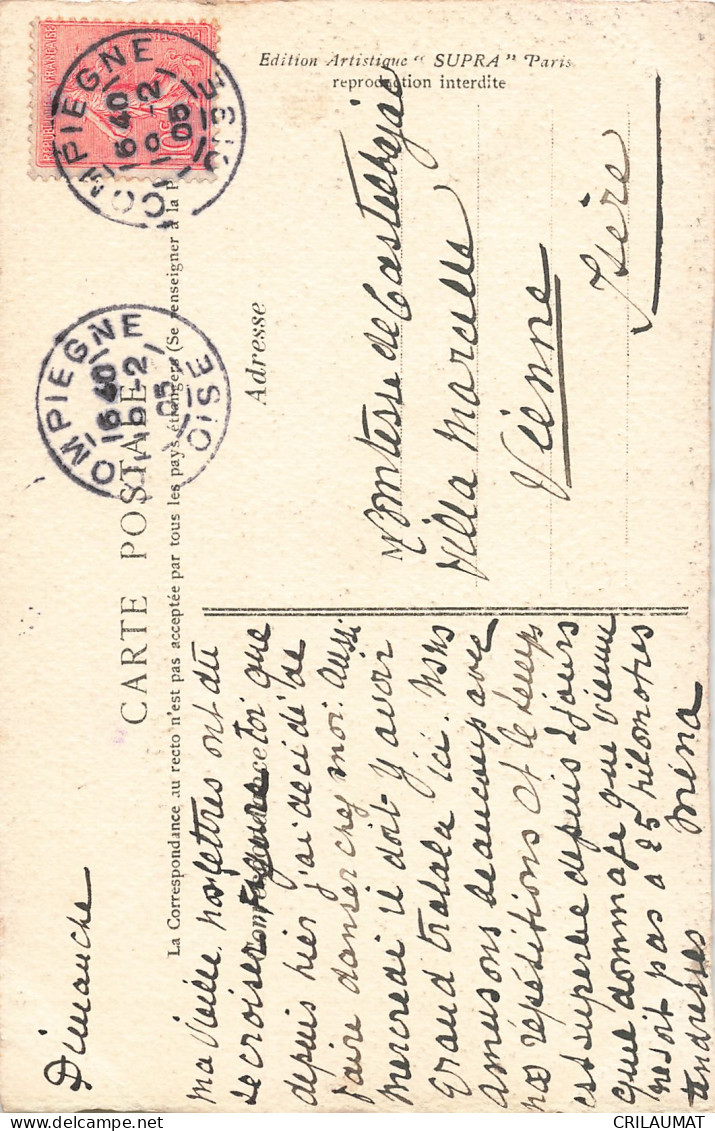 Edition Artistique " SUPRA " Paris
reproduction interdite
REPUBLIQUE FRANÇAISE
POSTES
10c
COMPIEGNE
16 40
19 -2
05
OISE
COMPIEGNE
16 40
19 -2
05
OISE
CARTE POSTALE
La Correspondance au recto n'est pas acceptée par tous les pays étrangers (Se renseigner à la P
Adresse
M Comtesse de Castelbajac
Villa Marcelle
Vienne
Isère
Dimanche
ma Vieille nos lettres ont dû
se croiser. Figure toi que
depuis hier j'ai décidé de
faire danser chez moi. Aussi
mercredi il doit y avoir
Grand tralala ici. Nous
amusons beaucoup avec
nos répétitions et le temps
est superbe depuis 2 jours
quel dommage que Vienne
ne soit pas à 25 kilomètres
tendresses Mina
CRILAUMAT